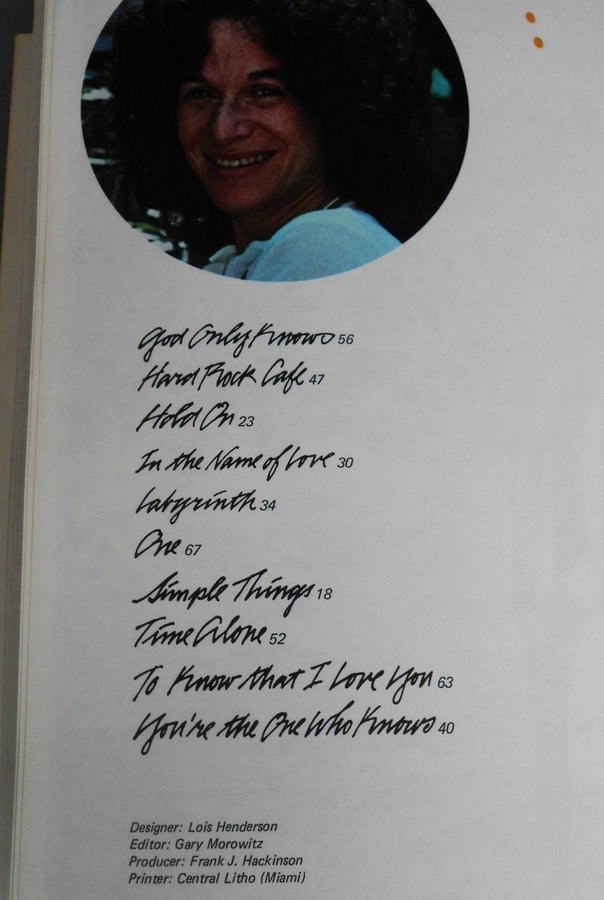 God Only Knows 56
Hard Rock Cafe 47
Hold On 23
In the Name of Love 30
Labyrinth 34
One 67
Simple Things 18
Time Alone 52
To Know that I Love You 63
You're the One Who Knows 40
Designer: Lois Henderson
Editor: Gary Morowitz
Producer: Frank J. Hackinson
Printer: Central Litho (Miami)